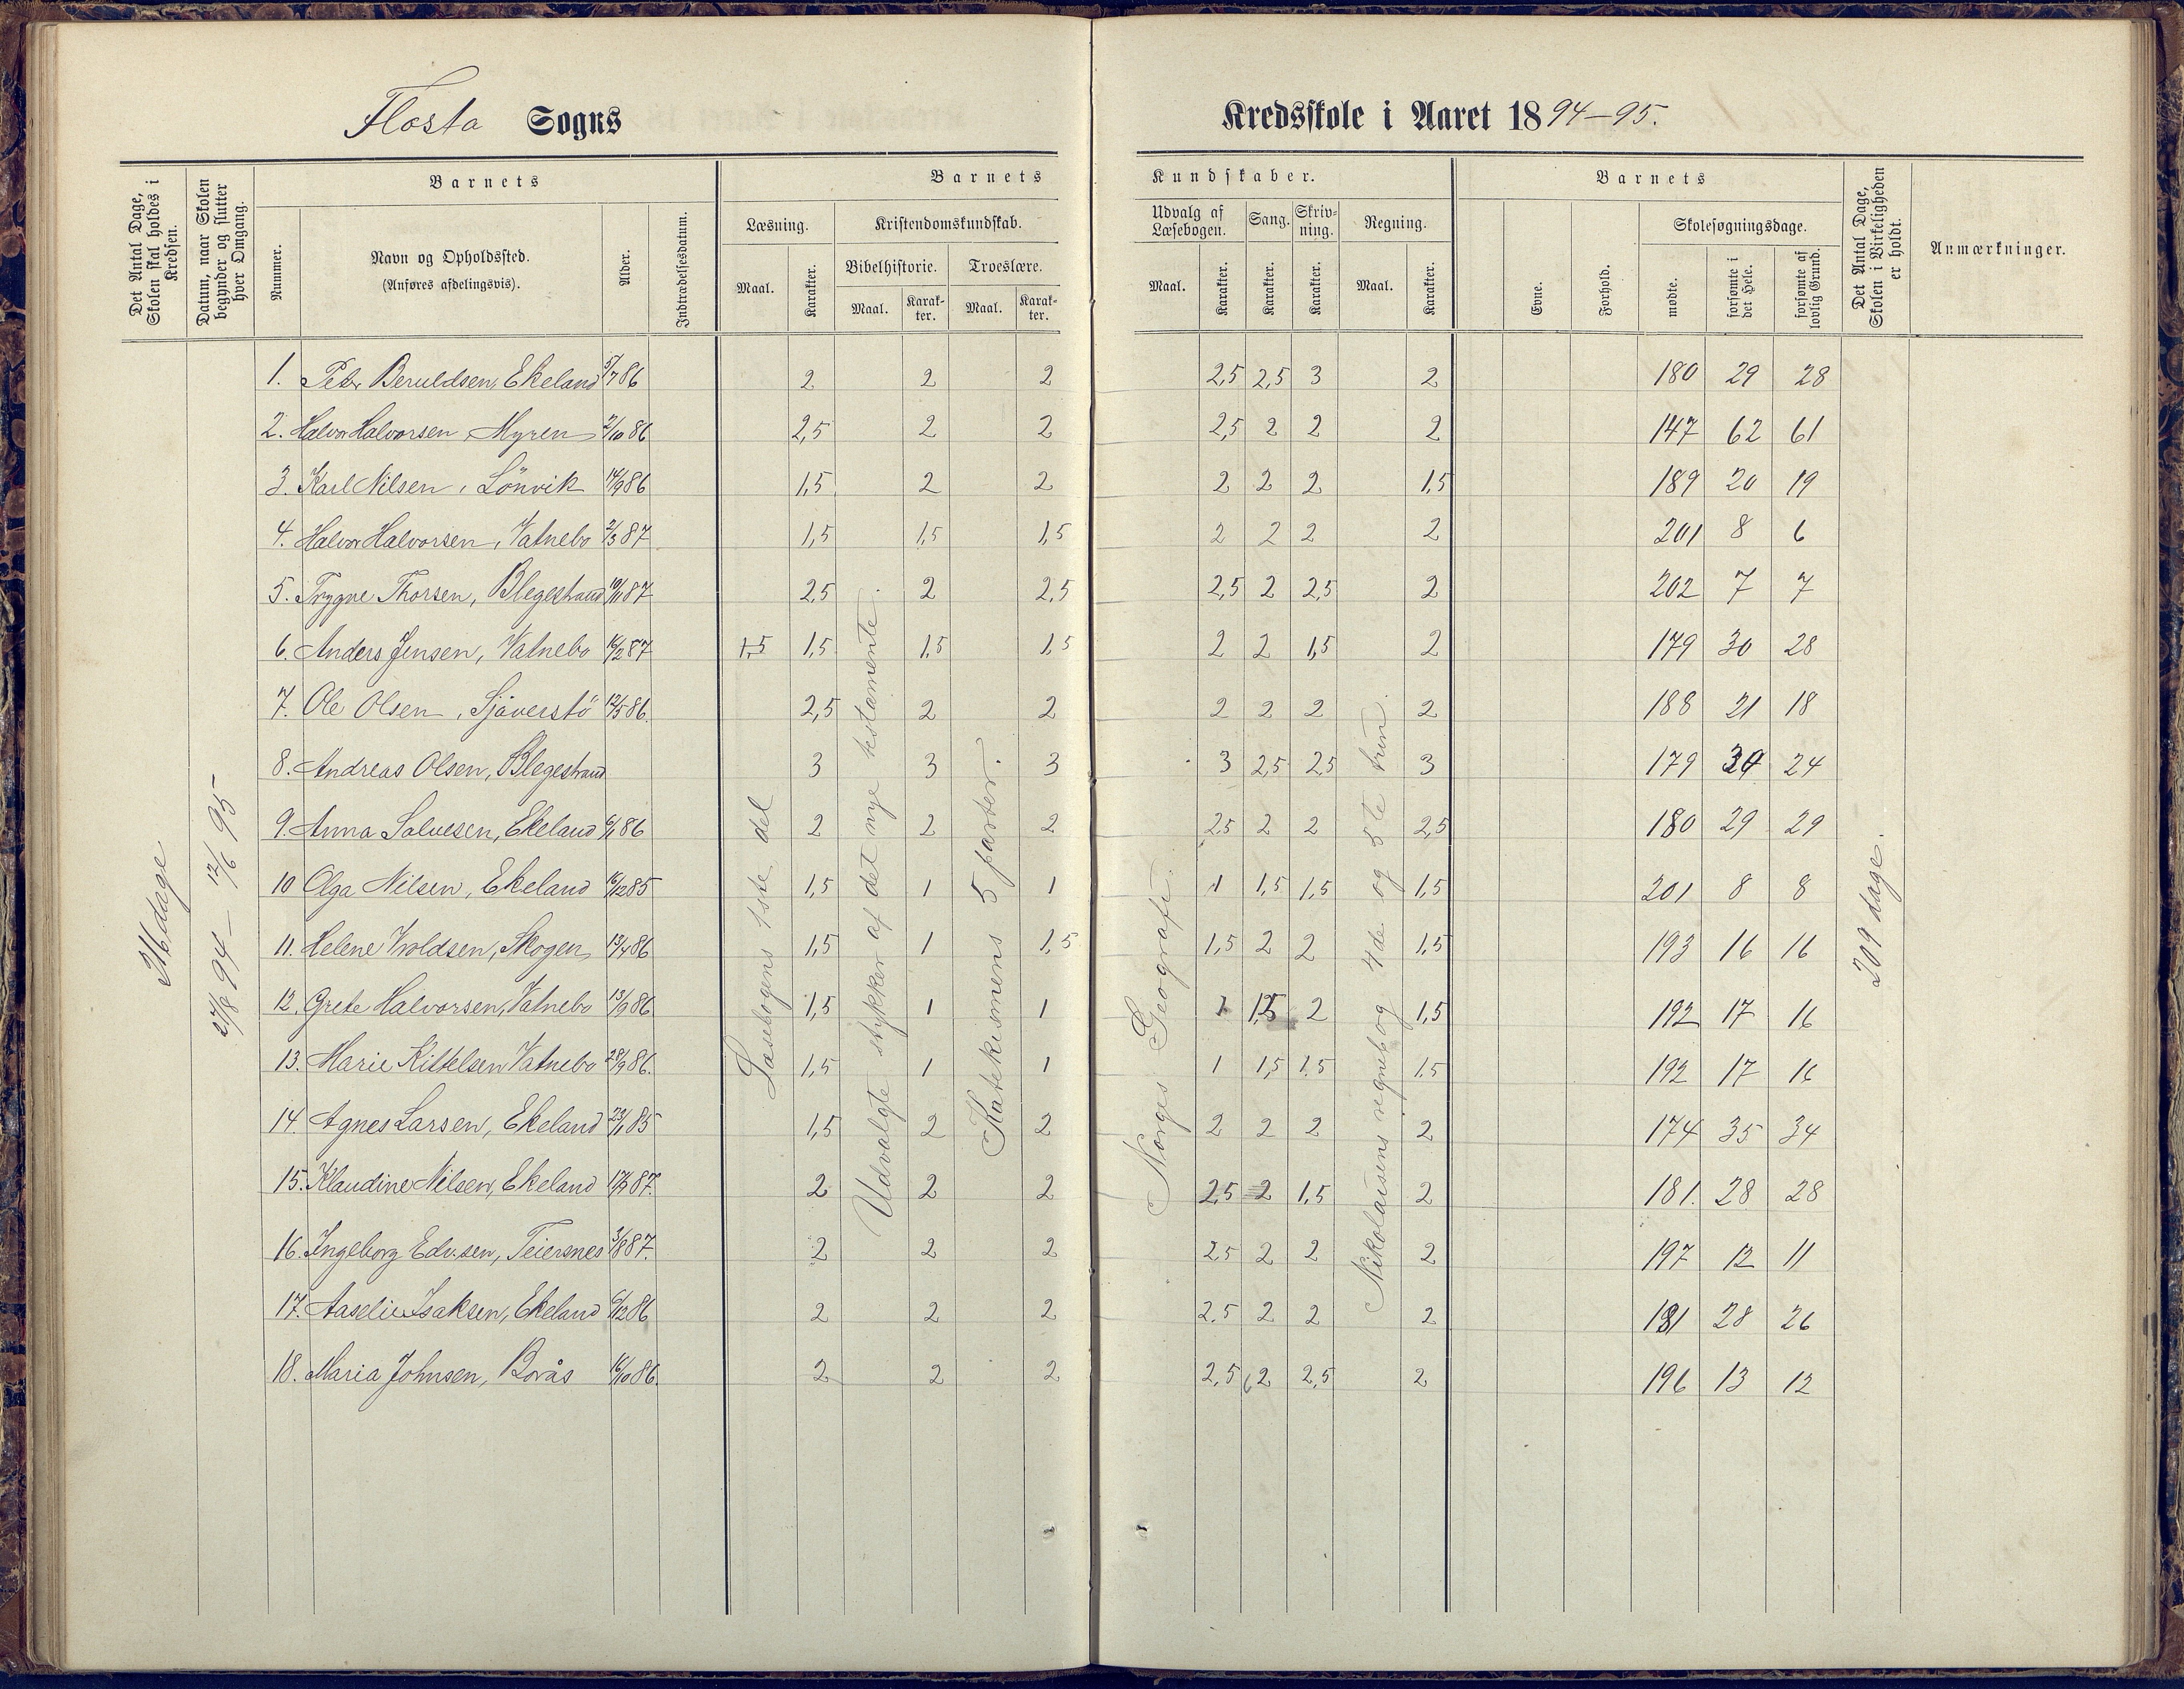 Flosta Sogns
Kredsskole i Aaret 1894–95.
Det Antal Dage, Skolen skal holdes i Kredsen.
Datum, naar Skolen begynder og slutter hver Omgang.
Barnets
Nummer.
Navn og Opholdssted.
(Anføres afdelingsvis).
Alder.
Indtrædelsesdatum.
Barnets
Læsning.
Maal.
Karakter.
Kristendomskundskab.
Bibelhistorie.
Maal.
Karak-
ter.
Troeslære.
Maal.
Karak-
ter.
Kundskaber.
Udvalg af
Læsebogen.
Maal.
Karakter.
Sang.
Karakter.
Skriv-
ning.
Karakter.
Regning.
Maal.
Karakter.
Barnets
Evne.
Forhold.
Skolesøgningsdage.
mødte.
forsømte i
det Hele.
forsømte af
lovlig Grund.
Det Antal Dage, Skolen i Virkeligheden er holdt.
Anmærkninger.
dage
27/8 94 – 12/6 95
Læsebogens 1ste del
Udvalgte stykker af det nye testamente.
Katekismens 5 parter.
Norges Geografi.
Nikolaisens regnebog 4de og 5te trin.
209 dage.
1. Peter Beruldsen, Ekeland 5/7 86 2 2 2 2,5 2,5 3 2 180 29 28
2. Halvor Halvorsen, Myren 2/10 86 2,5 2 2 2,5 2 2 2 147 62 61
3. Karl Nilsen, Lönvik 14/9 86 1,5 2 2 2 2 2 1,5 189 20 19
4. Halvor Halvorsen, Vatnebo 2/3 87 1,5 1,5 1,5 2 2 2 2 201 8 6
5. Trygve Thorsen, Blegestrand 10/11 87 2,5 2 2,5 2,5 2 2,5 2 202 7 7
6. Anders Jensen, Vatnebo 16/2 87 1,5 1,5 1,5 1,5 2 2 1,5 2 179 30 28
7. Ole Olsen, Sjåverstö 12/5 86. 2,5 2 2 2 2 2 2 188 21 18
8. Andreas Olsen, Blegestrand 3 3 3 3 2,5 2,5 3 179 30 24
9. Anna Salvesen, Ekeland 6/1 86 2 2 2 2,5 2 2 2,5 180 29 29
10 Olga Nilsen, Ekeland 16/12 85 1,5 1 1 1 1,5 1,5 1,5 201 8 8
11. Helene Ivoldsen, Skogen 13/4 86 1,5 1 1,5 1,5 2 2 1,5 193 16 16
12. Grete Halvorsen, Vatnebo 13/9 86 1,5 1 1 1 1,5 2 1,5 192 17 16
13. Marie Kittelsen Vatnebo 28/9 86. 1,5 1 1 1 1,5 1.5 1.5 192 17 16
14. Agnes Larsen, Ekeland 23/1 85 1,5 2 2 2 2 2 2 174 35 34
15. Klaudine Nilsen, Ekeland 17/7 87. 2 2 2 2,5 2 1,5 2 181. 28 28
16. Ingeborg Edv.sen, Teiersnes 3/8 87. 2 2 2 2,5 2 2 2 197 12 11
17. Aaselie Isaksen, Ekeland 6/12 86 2 2 2 2,5 2 2 2 181 28 26
18. Maria Johnsen, Borås 16/10 86. 2 2 2 2,5 2 2,5 2 196 13 12